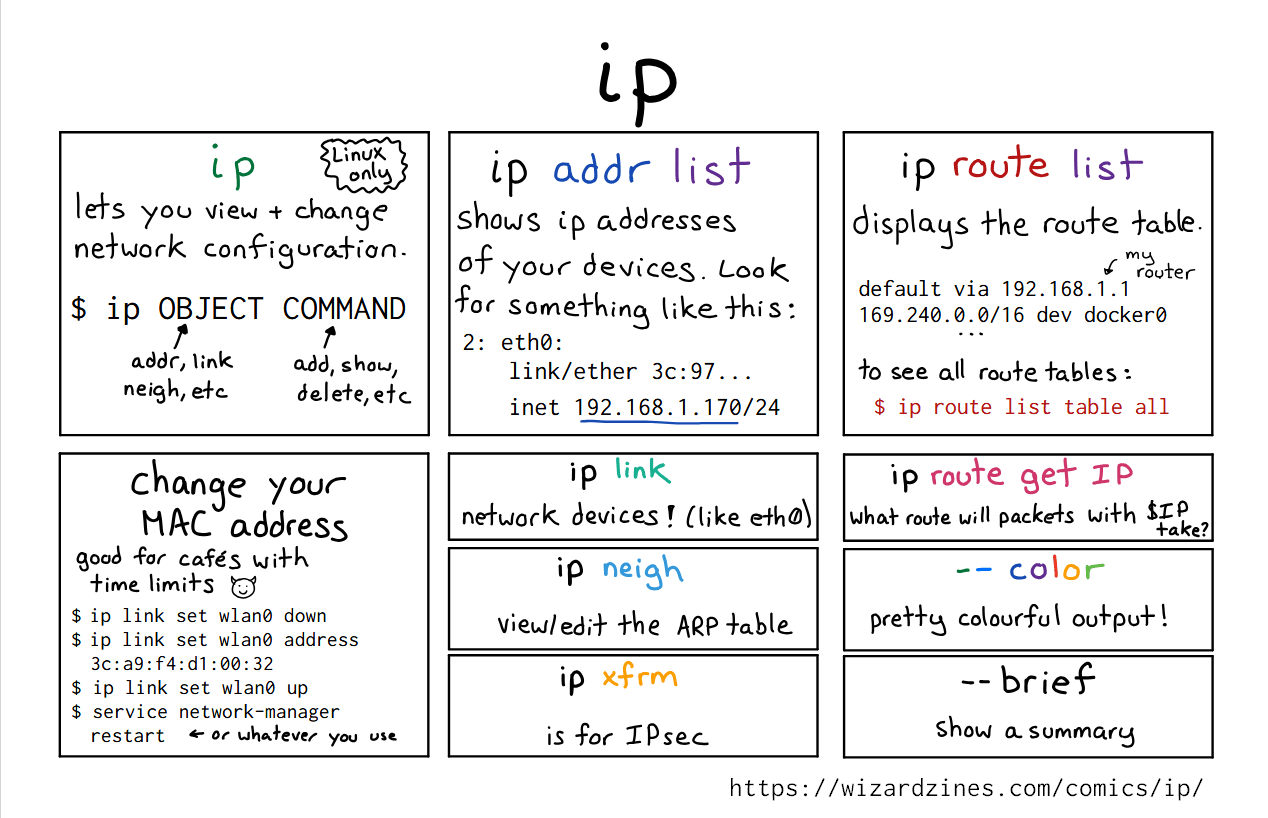 ip
ip
Linux
only
lets you view + change
network configuration.
$ ip OBJECT COMMAND
addr, link
neigh, etc
add, show,
delete, etc
ip addr list
shows ip addresses
of your devices. Look
for something like this:
2: eth0:
link/ether 3c:97...
inet 192.168.1.170/24
ip route list
displays the route table.
my
router
default via 192.168.1.1
169.240.0.0/16 dev docker0
...
to see all route tables:
$ ip route list table all
change your
MAC address
good for cafés with
time limits
$ ip link set wlan0 down
$ ip link set wlan0 address
3c:a9:f4:d1:00:32
$ ip link set wlan0 up
$ service network-manager
restart ← or whatever you use
ip link
network devices! (like eth0)
ip neigh
view/edit the ARP table
ip xfrm
is for IPsec
ip route get IP
what route will packets with $IP
take?
-- color
pretty colourful output!
--brief
show a summary
https://wizardzines.com/comics/ip/